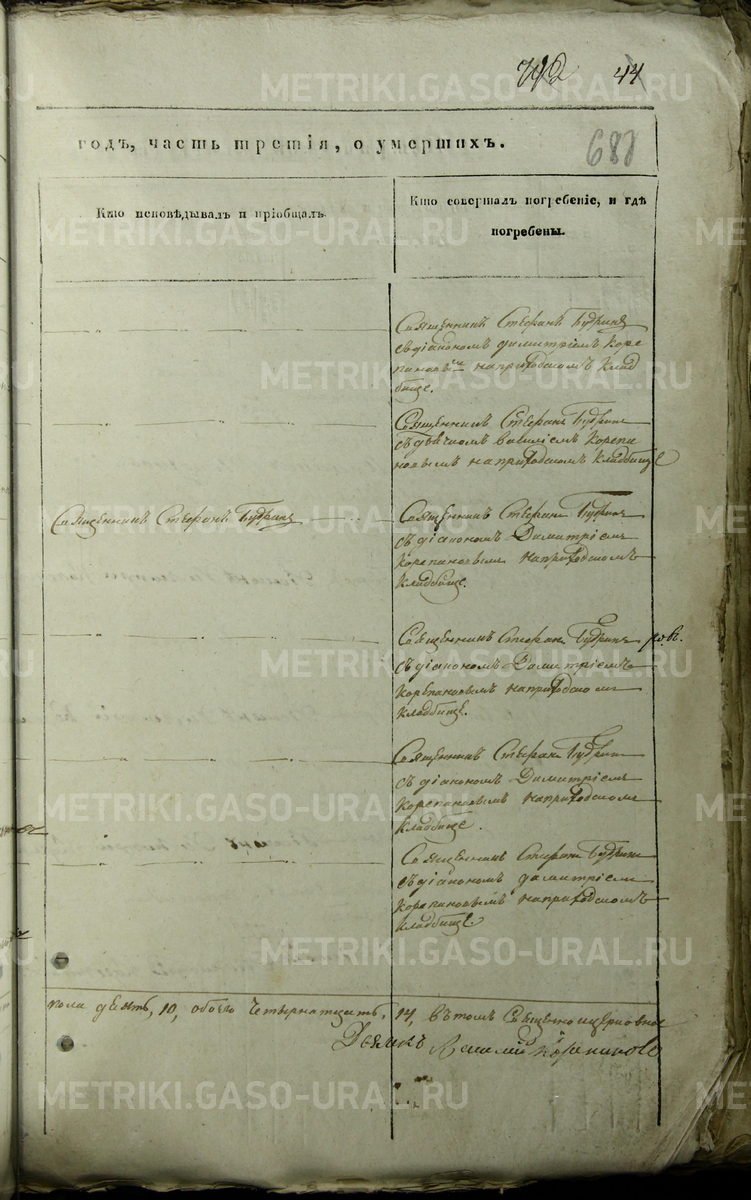 44
METRIKI.GASO-URAL.RU
годъ, часть третія, о умершихъ.
680
Кто исповѣдывалъ и пріобщалъ.
Кто совершалъ погребеніе, и гдѣ
погребены.
Священникъ Стефанъ Будринъ
съ діакономъ димитріемъ Коре
пановымъ на приходскомъ клад
бище.
Священникъ Стефанъ Будринъ
съ дьячкомъ василіемъ Корепа
новымъ на приходскомъ кладбище
Священникъ Стефанъ Будринъ
Священникъ Стефанъ Будринъ
съ діакономъ Димитріемъ
Корепановымъ на приходскомъ
кладбище.
Священникъ Стефанъ Будринъ
съ діакономъ Димитріемъ
Корепановымъ на приходскомъ
кладбище.
Священникъ Стефанъ Будринъ
съ діакономъ Димитріемъ
Корепановымъ на приходскомъ
кладбище.
Священникъ Стефанъ Будринъ
съ діакономъ димитріемъ
Корепановымъ на приходскомъ
кладбище.
пола 10, обоего четырнатцать, 14, въ томъ
Дьячекъ Василий Корепановъ